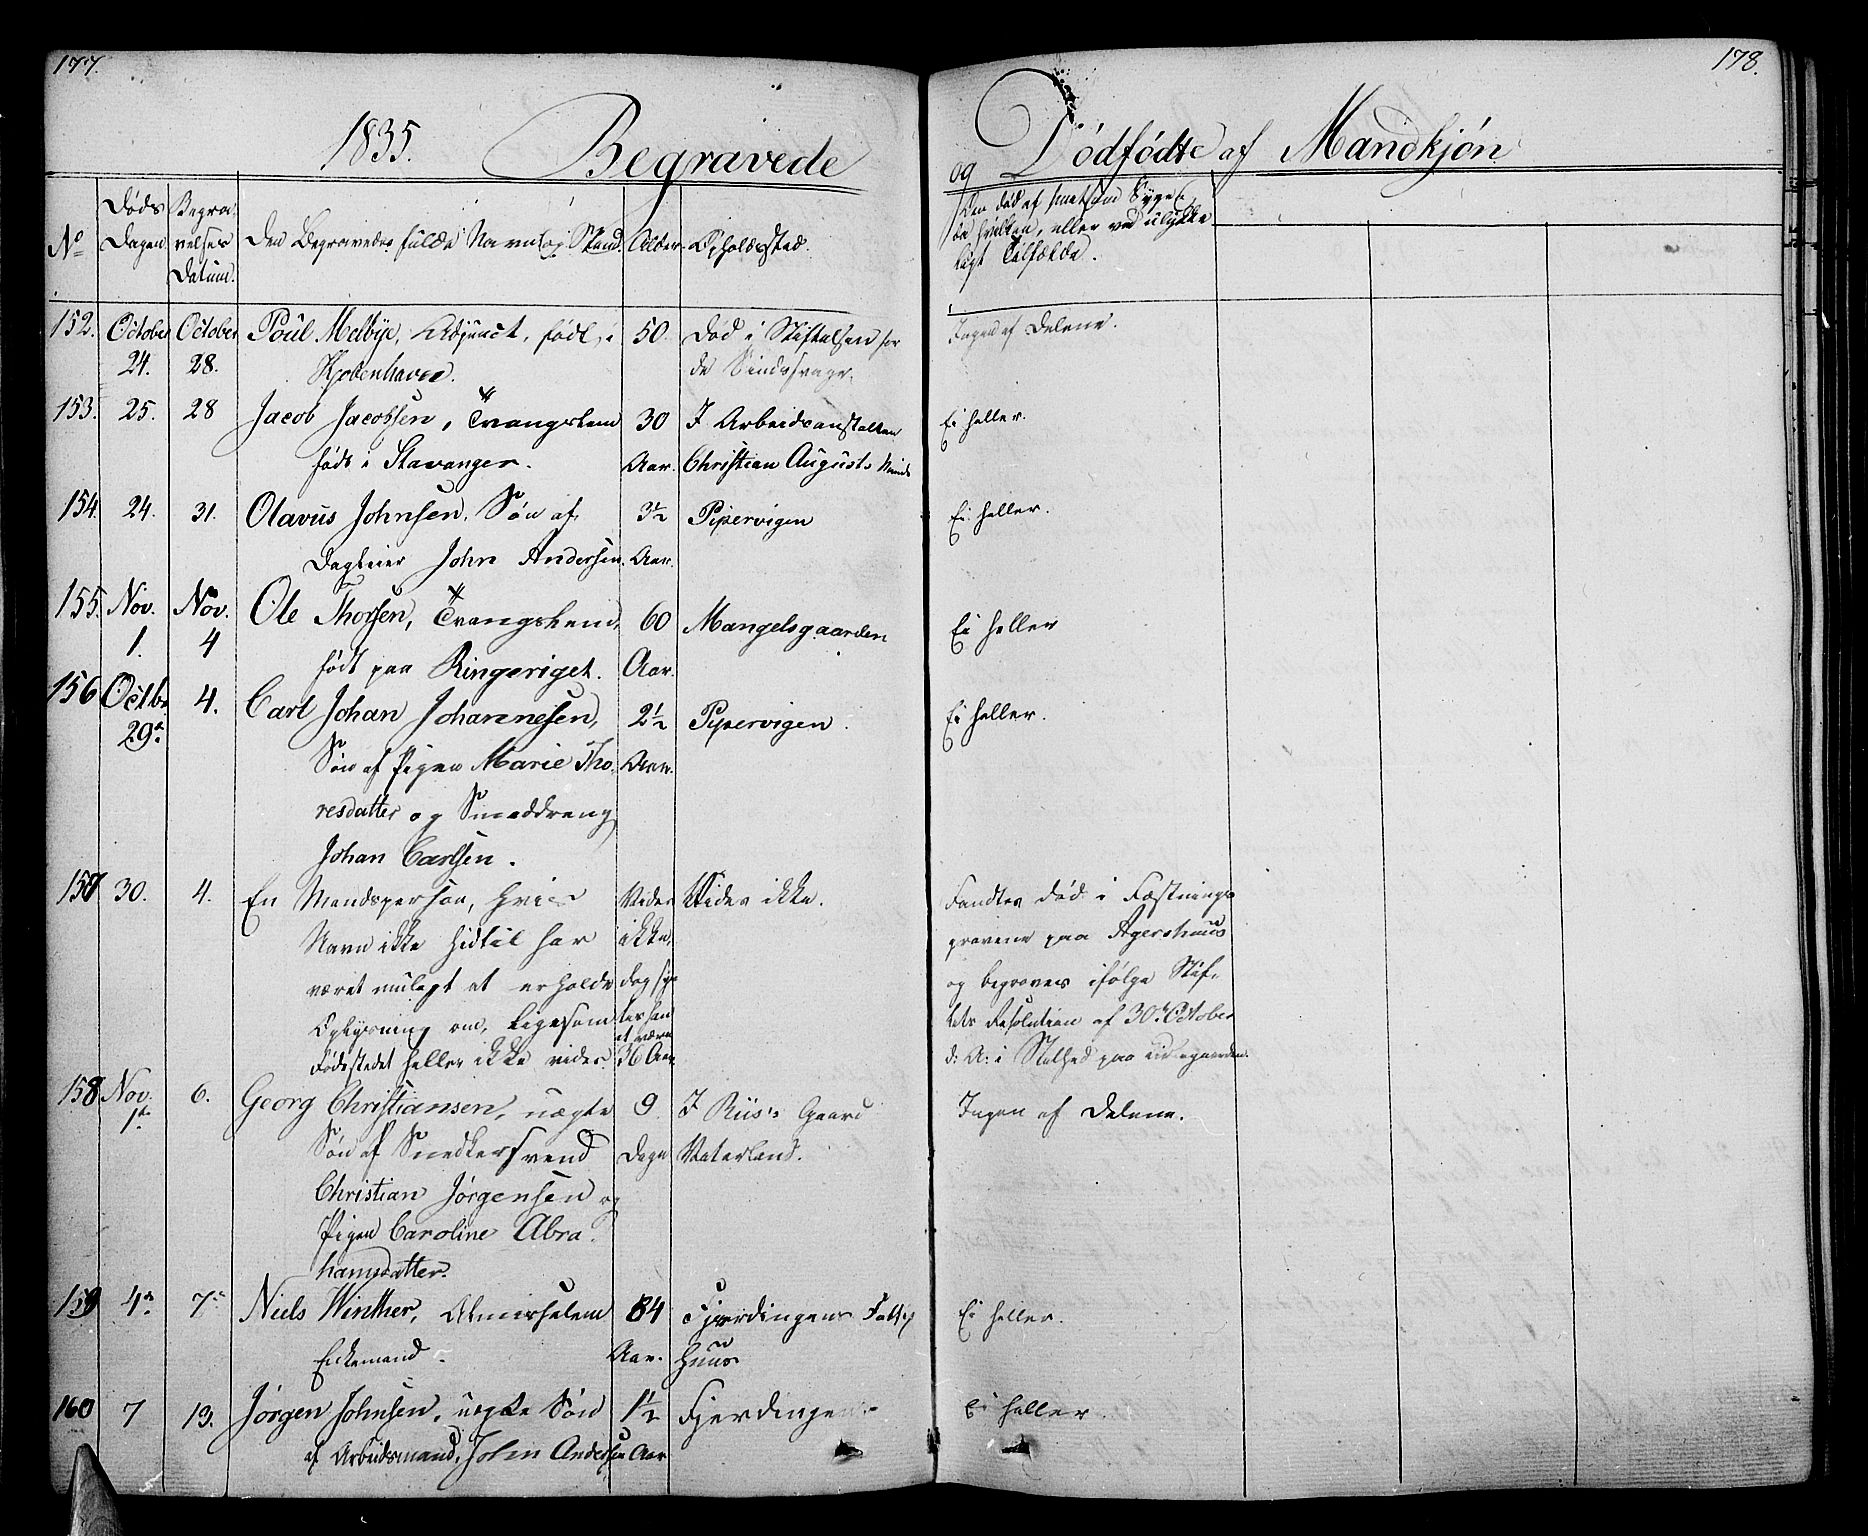 177.
178.
1835. Begravede
og Dödfödte af Mandkjön
No
Døds Dagen
Begravelses Datum.
Den Begravedes fulde Navn og Stand.
Alder.
Opholdssted.
Om død af smitsom Syge
da hvilken, eller ved ulykke
ligt Tilfælde.
152. October 24. October 28. Poul Melbye, Adjunct, født i 50. Død i Stiftelsen for Ingen af Delene.
Kjøbenhavn. de Sindssvage.
153. 25. 28 Jacob Jacobsen, Tvangslem 30 I Arbeidsanstalten Ei heller.
født i Stavanger. Aar. Christian Augusts Minde
154. 24. 31. Olavus Johnsen, Søn af 3½ Pipervigen Ei heller.
Dagleier John Andersen. Aar.
155. Nov. 1. Nov. 4 Ole Thorsen, Tvangslem, 60 Mangelsgaarden Ei heller
født paa Ringeriget. Aar.
156 Octbr 29. 4. Carl Johan Johannesen, 2½ Pipervigen. Ei heller.
Søn af Pigen Marie Tho- Aar.
resdatter og Smeddreng
Johan Carlsen.
157 30. 4. En Mandsperson, hvis Vides Vides ikke. Fandtes død i Fæstnings
Navn ikke hidtil har ikke, gravene paa Agershuus
været muligt at erholde dog sy- og begroves ifølge Stif-
Oplysning om, ligesom tes han tets Resolution af 30. October
Fødestedet heller ikke vides. at være 36 Aar d: A: i Stilhed paa Kirkegaarden.
158 Nov. 1. 6. Georg Christiansen, uægte 9 I Riis's Gaard Ingen af Delene.
Søn af Snedkersvend Dage Vaterland.
Christian Jørgensen og
Pigen Caroline Abra-
hamsdatter.
159 4. 7. Niels Winther, Almisselem 84 Fjerdingens Fattig Ei heller.
Enkemand. Aar. Huus
160 7 13. Jørgen Johnsen, uegte Søn 1½ Fjerdingen Ei heller.
af Arbeidsmand, John Andersen Aar